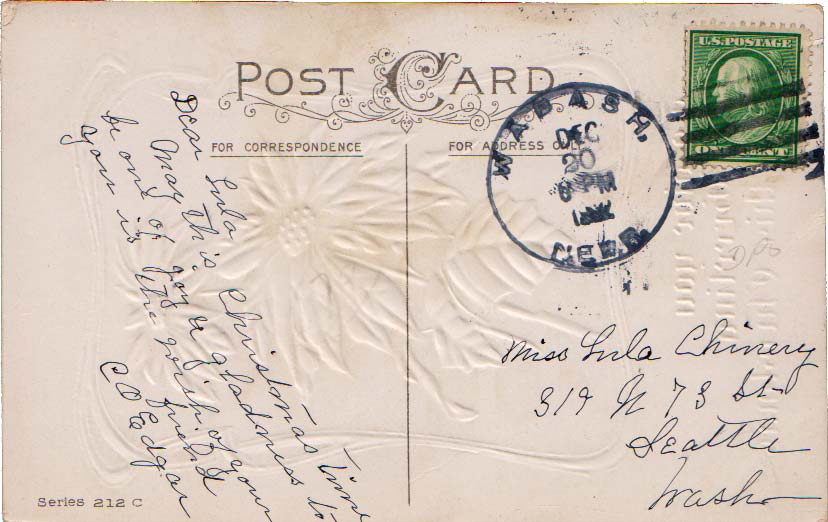 POST CARD
FOR CORRESPONDENCE
FOR ADDRESS ONLY
U.S. POSTAGE
ONE CENT
WABASH,
DEC
20
6 PM
NEBR.
DPO
Dear Lula
May this Christmas time
be one of joy & gladness to
you is the wish of your
friend
C O Edgar
Miss Lula Chinery
319 N 73 St
Seattle
Wash
Series 212 C